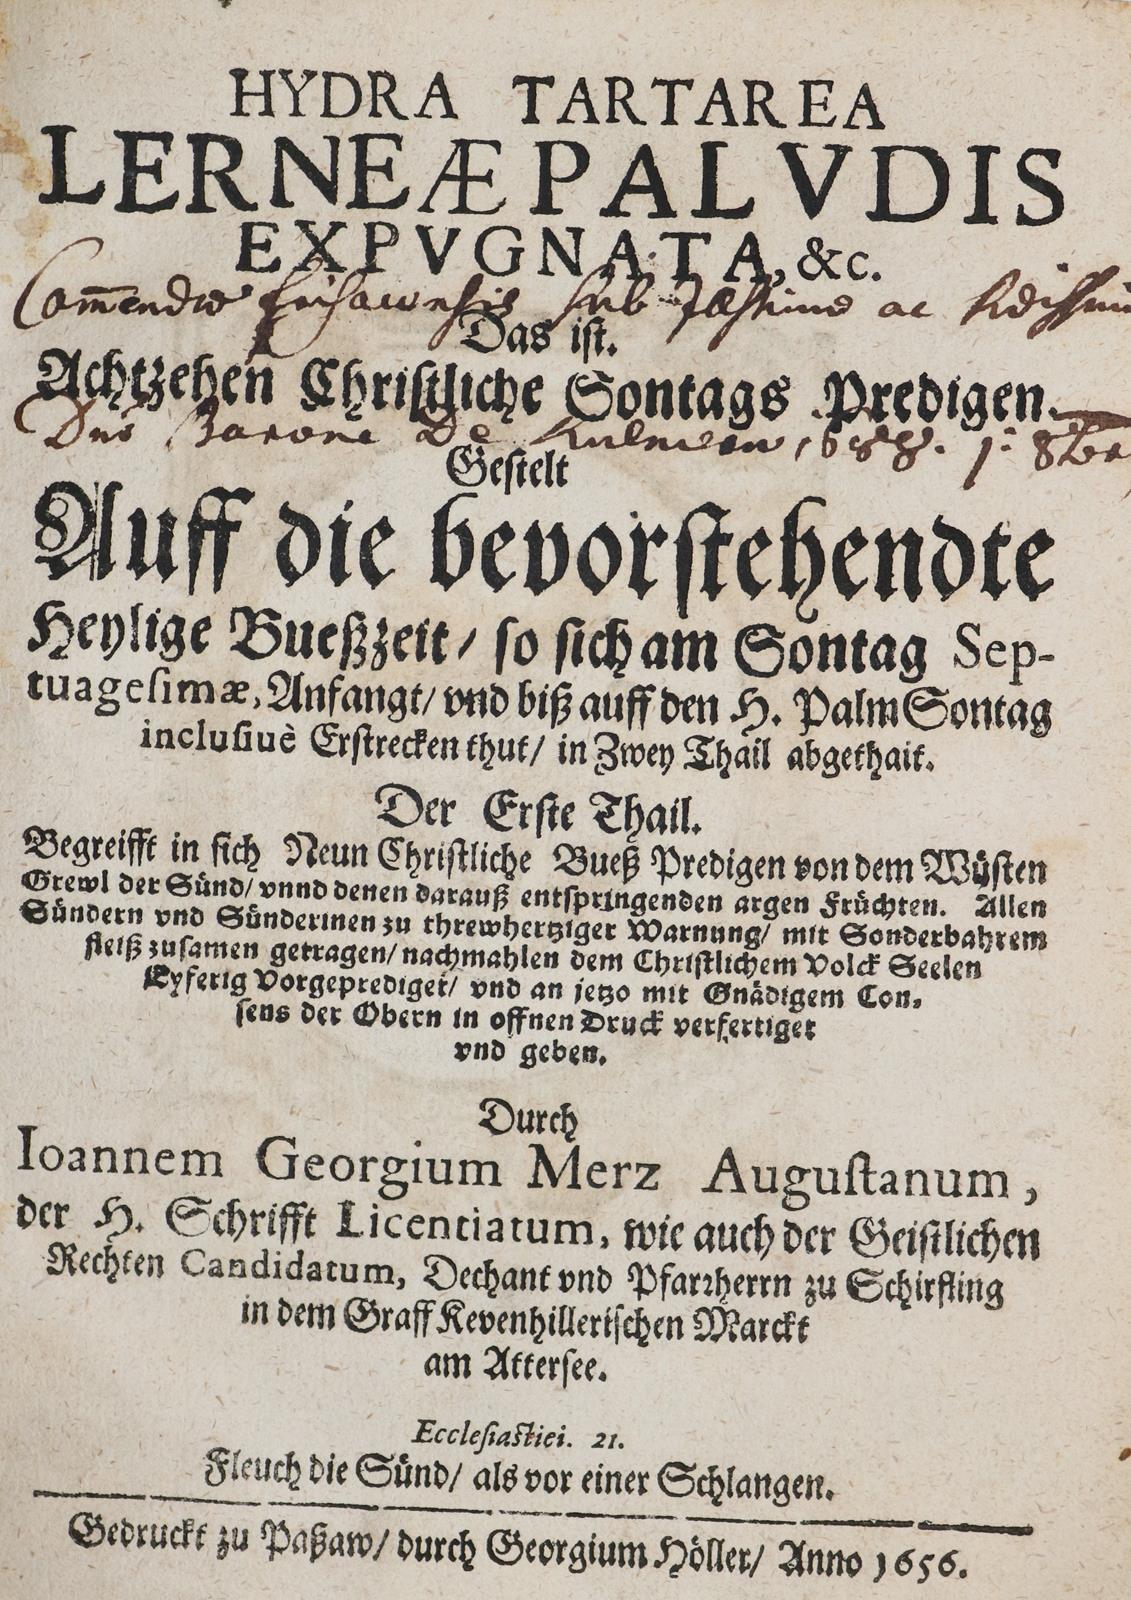 HYDRA TARTAREA
LERNEÆ PALVDIS
EXPVGNATA, &c.
Com̄endæ sub ac
Das ist.
Achtzehen Christliche Sontags Predigen.
Barone De
Gestelt
Auff die bevorstehendte
Heylige Bueßzeit / so sich am Sontag Sep-
tuagesimæ, Anfangt / vnd biß auff den H. Palm Sontag
inclusiuè Erstrecken thut / in Zwey Thail abgethailt.
Der Erste Thail.
Begreifft in sich Neun Christliche Bueß Predigen von dem Wüsten
Grewl der Sünd / vnnd denen darauß entspringenden argen Früchten. Allen
Sündern vnd Sünderinen zu threwhertziger Warnung / mit Sonderbahrem
fleiß zusamen getragen / nachmahlen dem Christlichem Volck Seelen
Eyferig Vorgeprediget / vnd an jetzo mit Gnädigem Con-
sens der Obern in offnen Druck verfertiget
vnd geben.
Durch
Ioannem Georgium Merz Augustanum,
der H. Schrifft Licentiatum, wie auch der Geistlichen
Rechten Candidatum, Dechant vnd Pfarrherrn zu Schirfling
in dem Graff Kevenhillerischen Marckt
am Attersee.
Ecclesiastici. 21.
Fleuch die Sünd / als vor einer Schlangen.
Gedruckt zu Paßaw / durch Georgium Höller / Anno 1656.